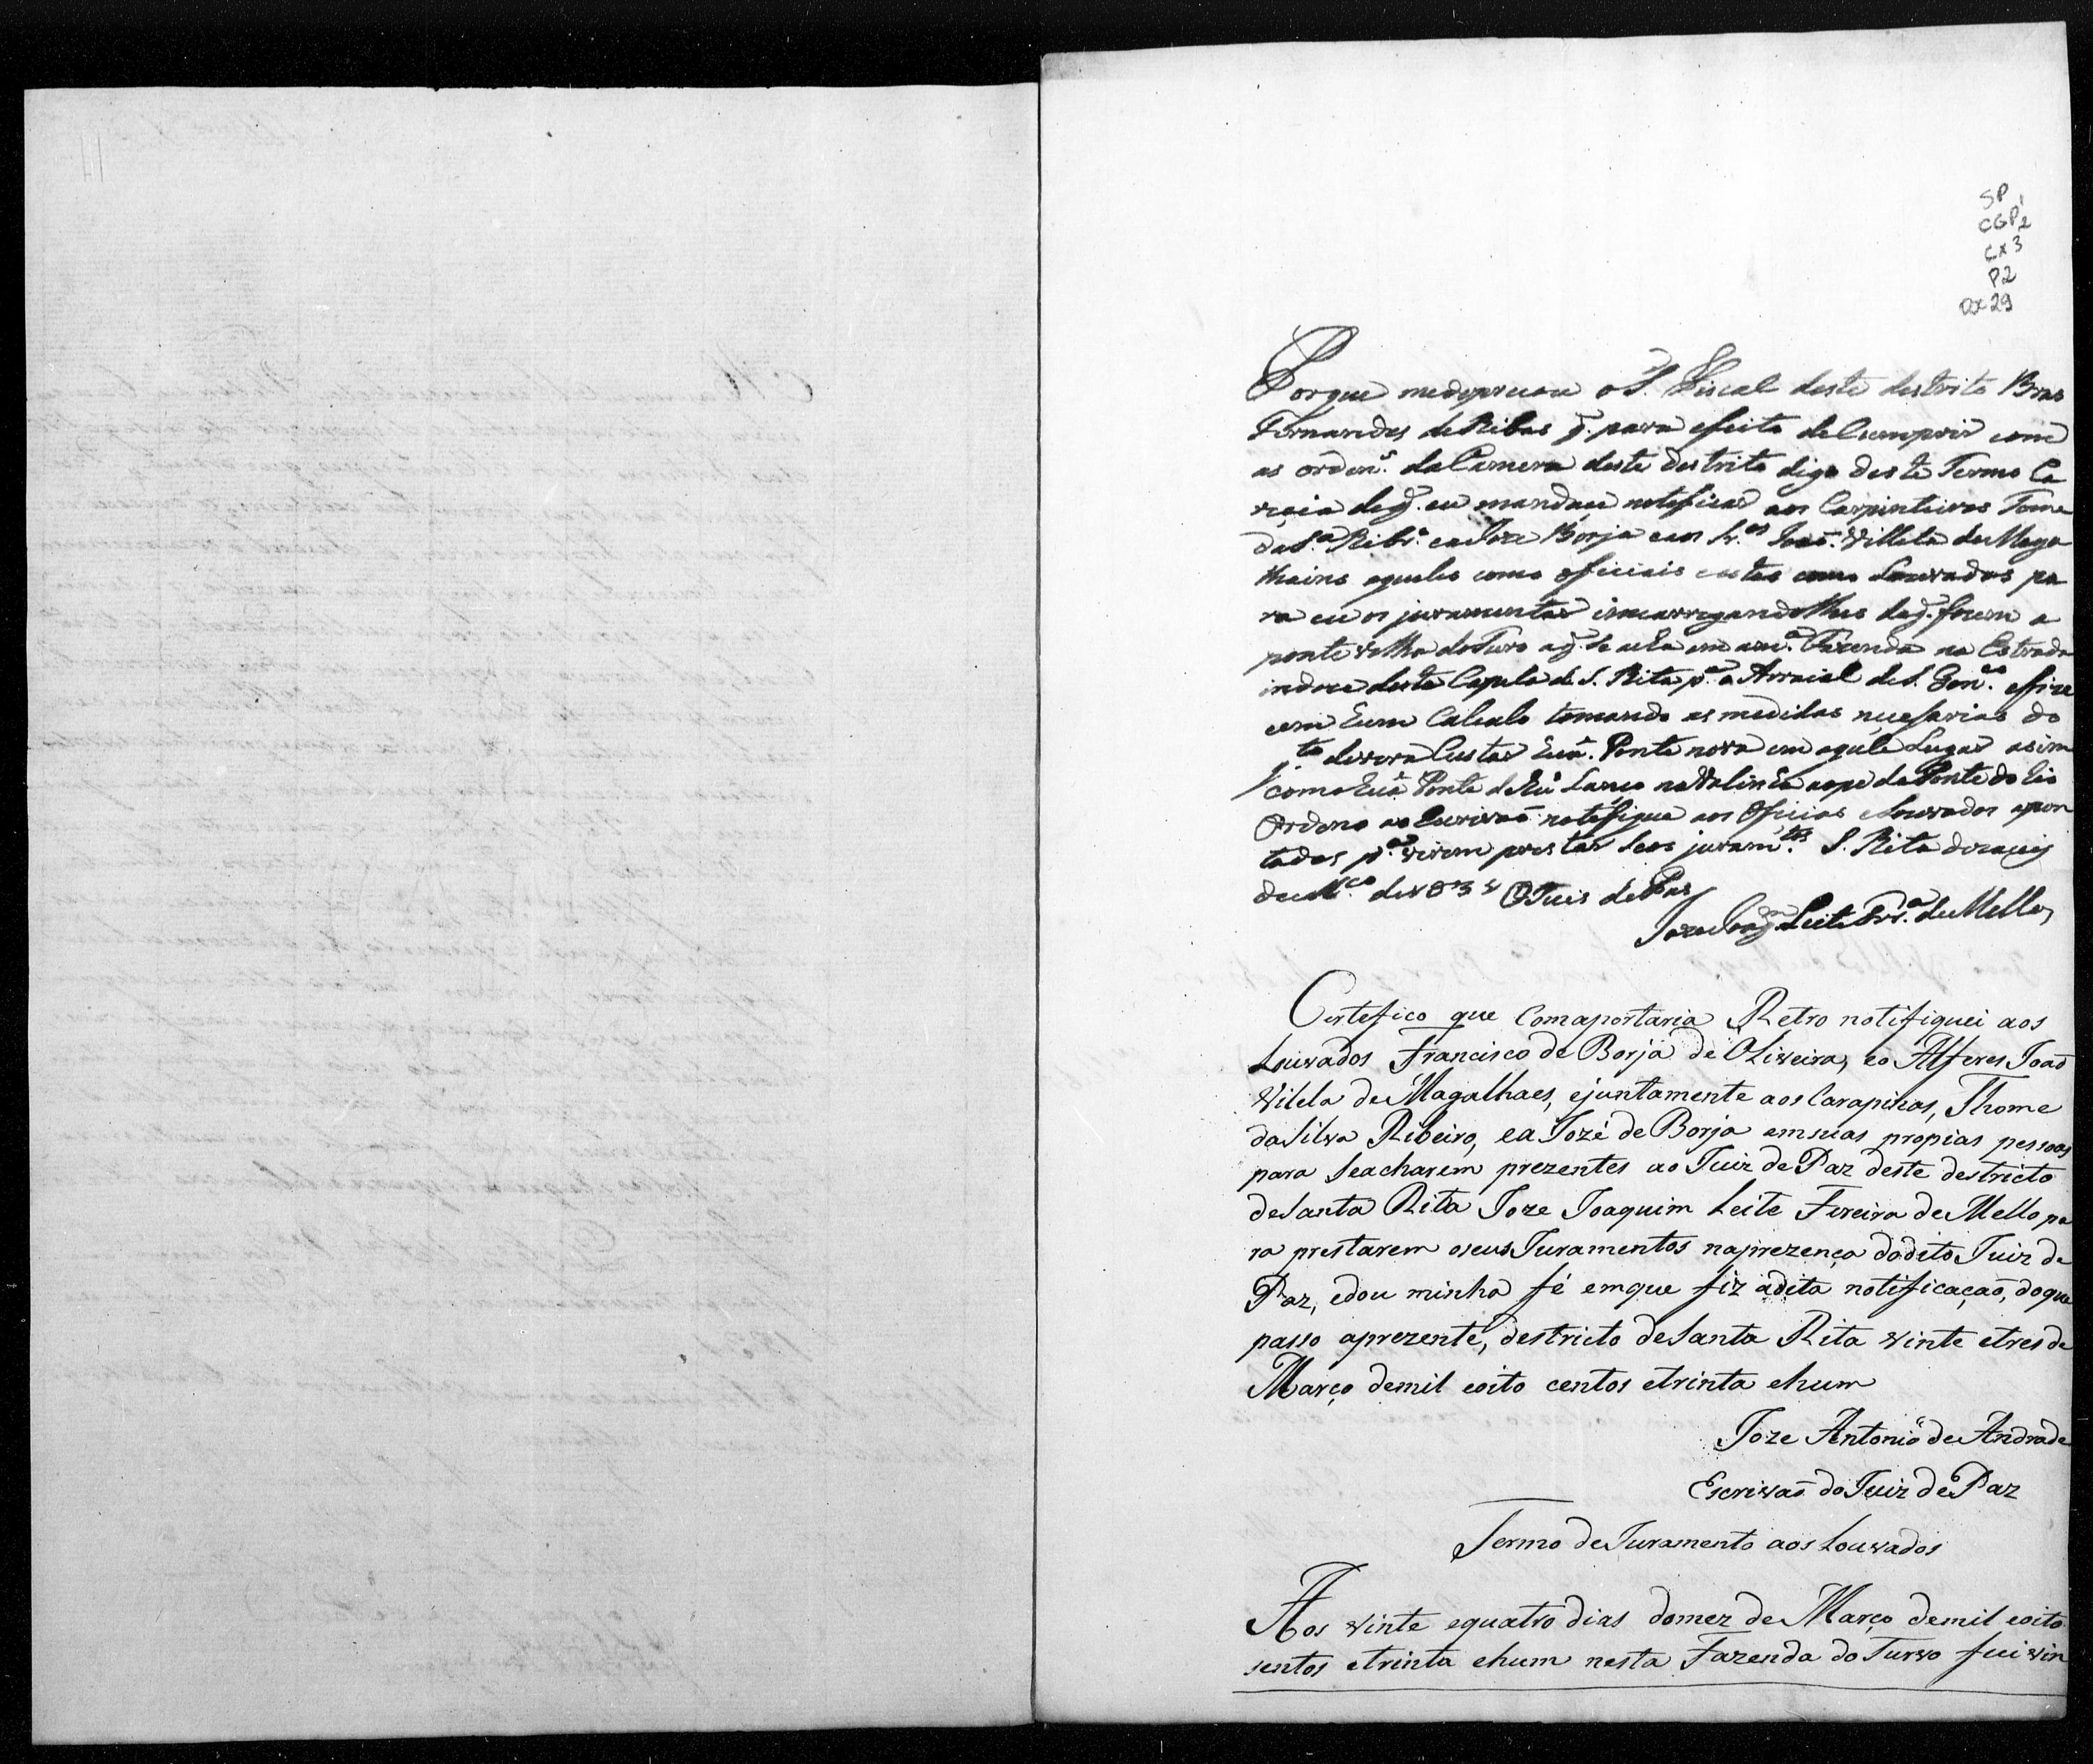 SP
CGP 1/2
cx 3
P2
Dx 29
Porque medeprecou o S. Fiscal deste destrito Bras
Fernandes de Ribas q. para efeito de Cumprir com
as orden.s da Camera deste destrito digo deste Termo Ca
recia de q. eu mandace noteficar aos Carpinteiros Tome
da S.a Ribr.o ea Joze Borja eaos Joaõ Villela de Maga
lhains aqueles como oficiais e estes como Louvados pa
ra eu os juramentar incarregandolhes de q. forem a
ponte velha do Turvo a q. se acha em a m.a Fazenda na Estrada
indoce desta Capela de S. Rita p.a o Arraial de S. Gon.co efize
cem hum Calculo tomando as medidas neceçarias do
q.to devera Custar huã Ponte nova em aquele Lugar asim
como huã Ponte de hũ Lanço na Valinha ao pe da Ponte do Rio
Ordeno ao Escrivaõ notefique aos Oficiais e Louvados apon
tados p.a virem prestar seos juram.tos S. Rita
de M.co de 1831 O Juis de Pas
Joze Joaq.m Leite Frr.a de Mello
Certefico que Comaportaria Retro notifiquei aos
Louvados Francisco de Borja de Oliveira, eo Alferes Joaõ
Vilela de Magalhaes, ejuntamente aos Carapinas, Thome
da Silva Ribeiro, ea Jozé de Borja emsuas propias pessoas
para Seacharem prezentes ao Juiz de Paz deste destricto
de Santa Rita Joze Joaquim Leite Fereira de Mello pa
ra prestarem oseus Juramentos naprezença dodito Juiz de
Paz, edou minha fé emque fiz adita notificaçaõ, doque
passo aprezente, destricto de Santa Rita vinte etres de
Março demil eoito centos etrinta ehum
Joze Antonio de Andrade
Escrivaõ do Juiz de Paz
Termo de Juramento aos Louvados
Aos vinte equatro dias domez de Março demil eoito
sentos etrinta ehum nesta Fazenda do Turvo fui vin